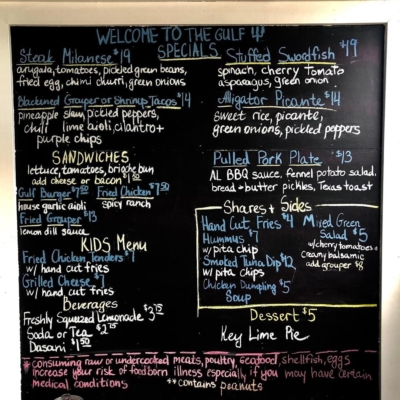 WELCOME TO THE GULF
SPECIALS
Steak Milanese $19
arugala, tomatoes, pickled green beans,
fried egg, chimi churri, green onions
Blackened Grouper or Shrimp Tacos $14
pineapple slaw, pickled peppers,
chili lime aioli, cilantro +
purple chips
SANDWICHES
lettuce, tomatoes, brioche bun
add cheese or bacon $1.50
Gulf Burger $7.50 Fried Chicken $7.50
house garlic aioli spicy ranch
Fried Grouper $13
lemon dill sauce
KIDS Menu
Fried Chicken Tenders $7
w/ hand cut fries
Grilled Cheese $7
w/ hand cut fries
Beverages
Freshly Squeezed Lemonade $3.75
Soda or Tea $2.75
Dasani $1.50
Stuffed Swordfish $19
spinach, cherry tomato
asparagus, green onion
Alligator Picante $14
sweet rice, picante,
green onions, pickled peppers
Pulled Pork Plate $13
AL BBQ sauce, fennel potato salad,
bread + butter pickles, Texas toast
Shares + Sides
Hand Cut Fries $4
Hummus $7
w/ pita chip
Smoked Tuna Dip $12
w/ pita chips
Chicken Dumpling $5
Soup
Mixed Green
Salad $5
w/ cherry tomatoes +
creamy balsamic
add grouper $8
Dessert $5
Key Lime Pie
* consuming raw or undercooked meats, poultry, seafood, shellfish, eggs
increase your risk of foodborn illness especially if you may have certain
medical conditions **contains peanuts